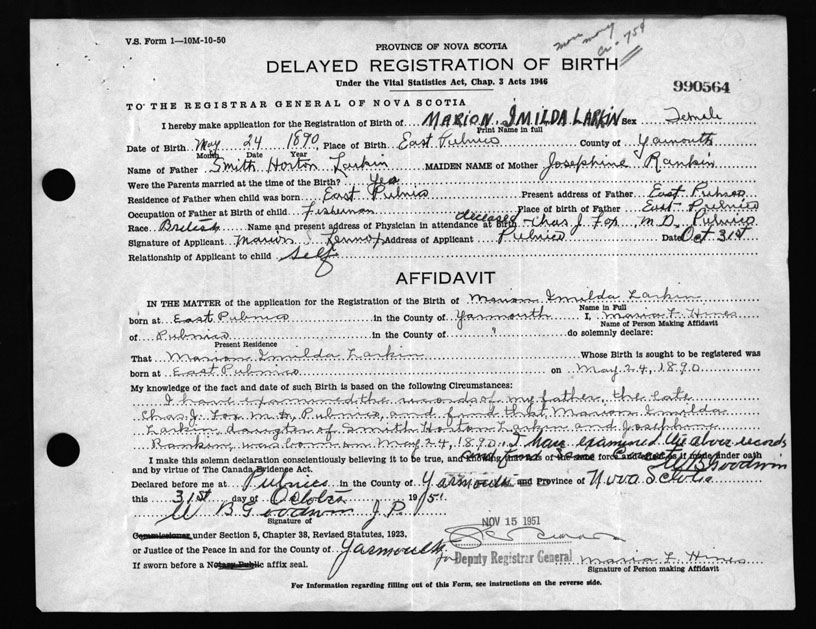 V.S. Form 1—10M-10-50
more money
Cr. 75¢
PROVINCE OF NOVA SCOTIA
DELAYED REGISTRATION OF BIRTH
Under the Vital Statistics Act, Chap. 3 Acts 1946
990564
TO THE REGISTRAR GENERAL OF NOVA SCOTIA
I hereby make application for the Registration of Birth of MARION IMILDA LARKIN Sex Female
Print Name in full
Date of Birth May 24 1890 Place of Birth East Pubnico County of Yarmouth
Month Date Year
Name of Father Smith Horton Larkin MAIDEN NAME of Mother Josephine Rankin
Were the Parents married at the time of the Birth? Yes
Residence of Father when child was born East Pubnico Present address of Father East Pubnico
Occupation of Father at Birth of child Fisherman Place of birth of Father East Pubnico
deceased
Race British Name and present address of Physician in attendance at birth Chas. J. Fox M.D. Pubnico
Signature of Applicant Marion Lennox Address of Applicant Pubnico Date Oct 31st
Relationship of Applicant to child Self
AFFIDAVIT
IN THE MATTER of the application for the Registration of the Birth of Marion Imilda Larkin
Name in Full
born at East Pubnico in the County of Yarmouth I, Maria F. Hines
Name of Person Making Affidavit
of Pubnico in the County of " do solemnly declare:
Present Residence
That Marion Imilda Larkin Whose Birth is sought to be registered was
born at East Pubnico on May 24, 1890
My knowledge of the fact and date of such Birth is based on the following Circumstances:
I have examined the records of my father, the late
Chas. J. Fox M.D., Pubnico, and find that Marion Imilda
Larkin daughter of Smith Horton Larkin and Josephine
Rankin, was born on May 24, 1890. I have examined the above records
and find same Correct W B Goodwin
I make this solemn declaration conscientiously believing it to be true, and knowing that it is of the same force and effect as if made under oath
and by virtue of The Canada Evidence Act.
Declared before me at Pubnico in the County of Yarmouth and Province of Nova Scotia
this 31st day of October 1951
W B Goodwin J.P.
Signature of
NOV 15 1951
Commissioner under Section 5, Chapter 38, Revised Statutes, 1923,
or Justice of the Peace in and for the County of Yarmouth
for Deputy Registrar General
Maria F. Hines
If sworn before a Notary Public affix seal.
Signature of Person making Affidavit
For Information regarding filling out of this Form, see instructions on the reverse side.